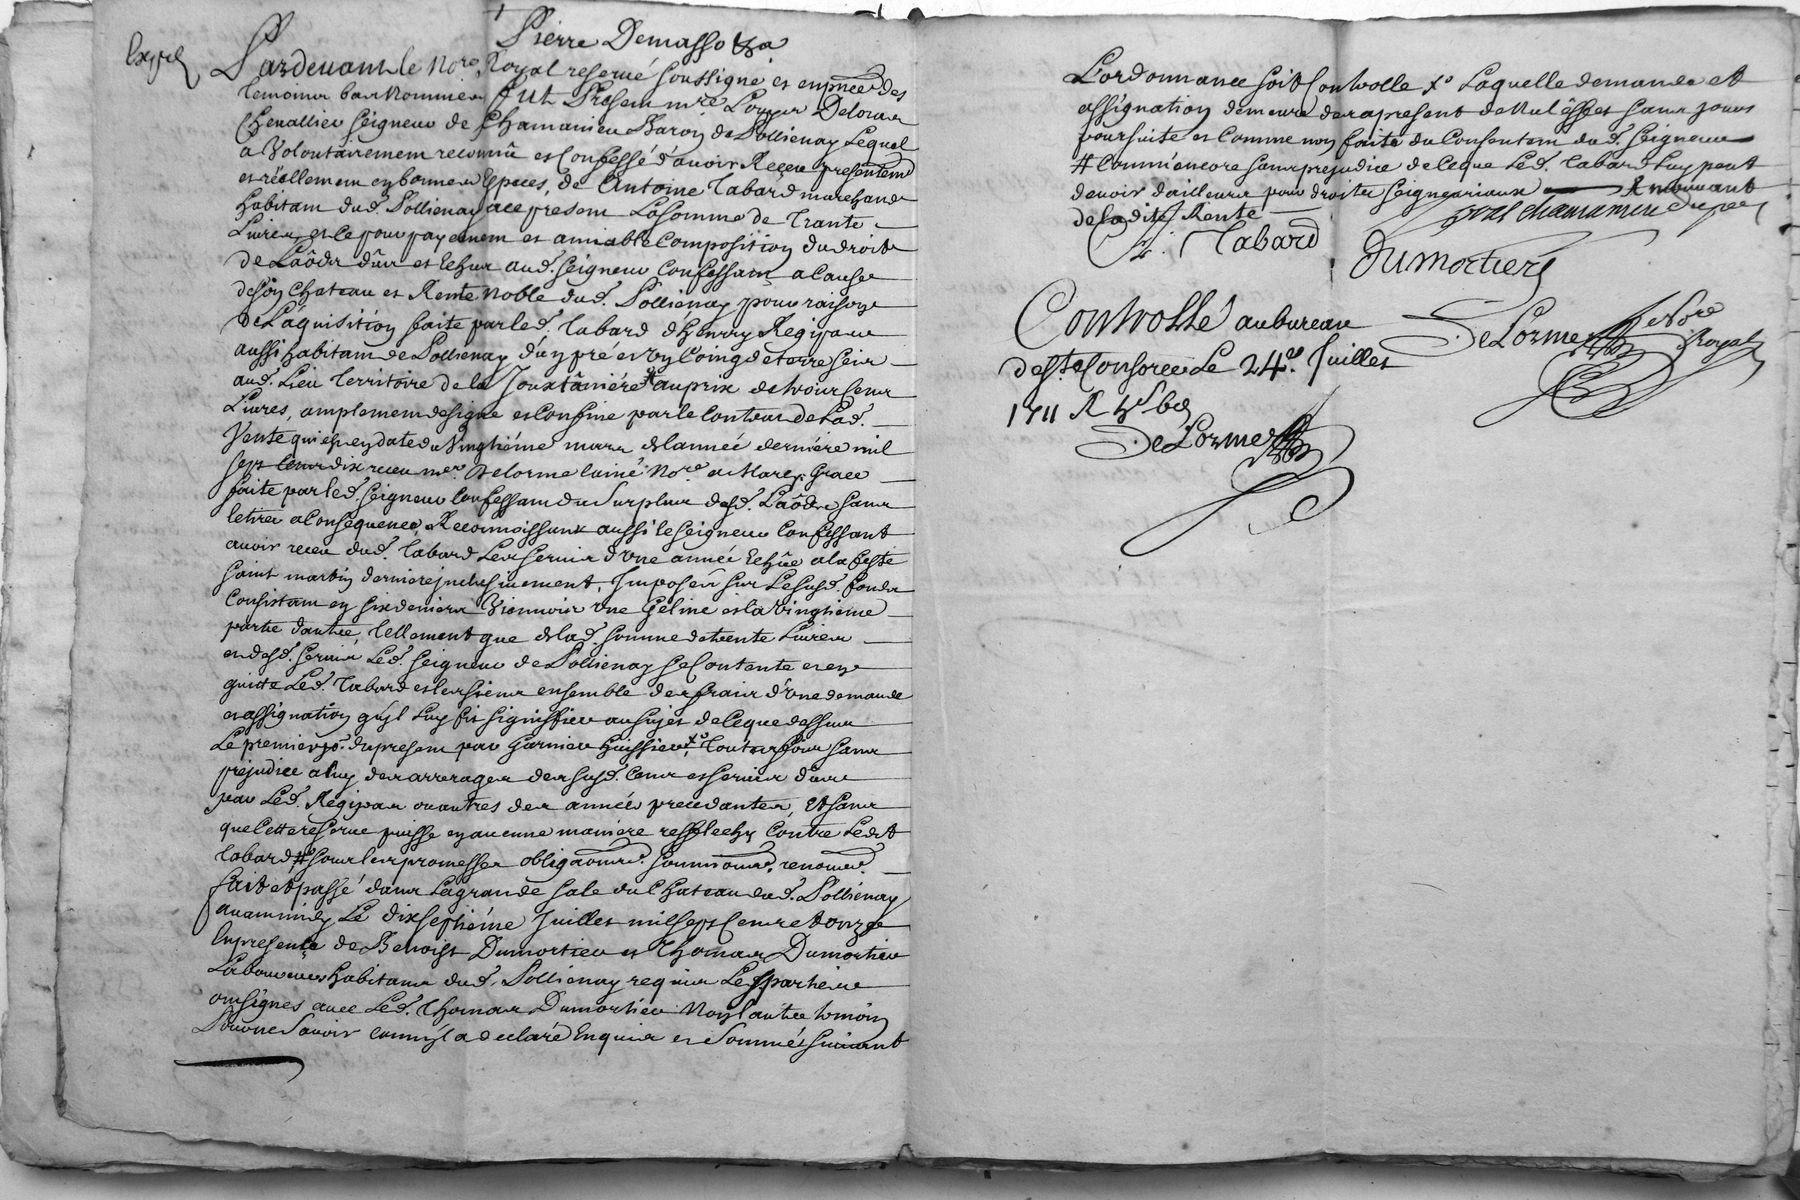 Pierre Demasso
Expé
Pardevant le No.re Royal reservé soussigné et en p.nce des
temoins bas nommes fut Present m.re Deloras
Chevallier Seigneur de Chamanieu Baron de Pollienay Lequel
a Volontairement reconnû et Confessé d'avoir Receu presentem.t
et réellement en bonnes Especes, de Antoine Tabard marchand
habitant dud. Pollienay ace present La somme de Trante
Livres, et Ce pour payement et amiable Composition du droit
de Laôds dûs et Echus aud. Seigneur Confessant a Cause
de son Chateau et Rente Noble dud. Pollienay pour raison
de L'aquisition faite par led. Tabard d'henry Regipas
aussi habitant de Pollienay d'un pré et un Coing de terre scis
aud. Lieu Territoire de la au prix de Livres, amplement designé et Confiné par le Contrat de Lad.
Vente qui est en datte du Vingtiéme mars de lannée derniére mil
sept Cents dix receu me. Delorme lainé No.re a Marcy, Grace
faite par led. Seigneur Confessant du Surplus desd. Laôds sans
letirer a Consequence, Reconnoissant aussi le seigneur Confessant
avoir receu dud. Tabard Les servis d'une année Echûe a la feste
saint martin derniere inclusivement, Imposés sur Le susd. fonds
Consistant en six deniers Viennois une Geline et la vingtiéme
partie dautre, Tellement que de lad. somme de trente Livres
et desd. servis Led. Seigneur de Pollienay se Contente et en
quitte Led. Tabard et les siens ensemble des frais d'une demande
et assignation qu'il Luy fit signiffier au sujet de Ceque dessus
Le premier jo. du present par Garnier huissier, x.o Toutes fois sans
prejudice a luy des arrerages des susd. Cens et servis dûs
par Led. Régipas ou autres des années precedantes, Et sans
que Cette reserve puisse en aucunne maniere Contre Ledit
Tabard # sous les promesses obliga.ons soumissions, renon.
fait et passé dans La grande sale du Chateau dud. Pollienay
avant midy Le dix septiéme Juillet mil sept Cents et onze
En presence de Benoist Dumortier et Thomas Dumortier
Laboureurs habitans dud. Pollienay requis Les parties
ont signés avec Led. Thomas Dumortier Non l'autre temoin
pour ne savoir Comm'il a déclaré Enquis et Sommé suivant
L'ordonnance soit Controllé x.o Laquelle demande et
assignation demeure des a present de Nul êffet sans jours
poursuite et Comme non faite du Consentem.t dud. Seigneur
# Comm'encore sans prejudice de Ceque Led. Tabard Luy peut
devoir dailleurs pour droits seigneuriaux mouvant
de ladite Rente
Tabard
chamanieu
dumortier
Controllé au bureau
de S.te Consorce Le 24.e Juillet
1711
DeLorme
DeLorme
No.re
Royal